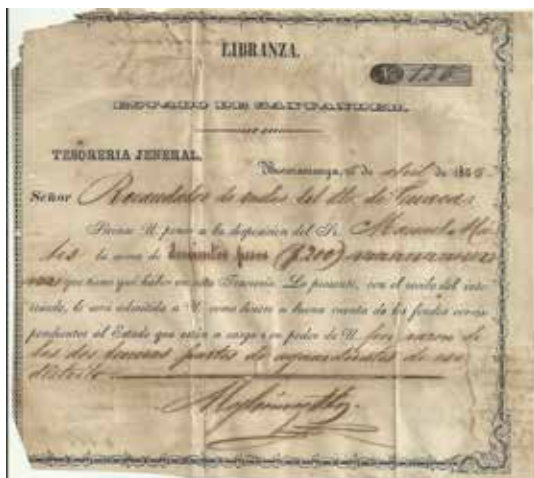 LIBRANZA.
ESTADO DE SANTANDER.
TESORERIA JENERAL.
Bucaramanga, de abril de 185
Señor Recaudador de rentas del dto. de Cúcuta
Sírvase U. poner a la disposicion del Sr. Manuel
la suma de doscientos pesos ($200)
que tiene qué haber en esta Tesorería. La presente, con el recibo del inte-
resado, le será admitida a U. como dinero a buena cuenta de los fondos corres-
pondientes al Estado que estén a cargo o en poder de U. por razon de
las dos terceras partes de aguardientes de ese
distrito